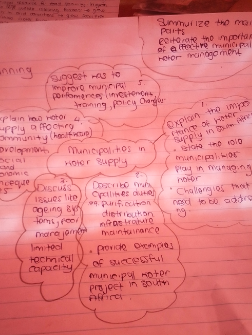 Summurize the main
Parts
reiterate the importan
of effective municipal
water management
nning
Suggest was to
improve municipal
performances, investement
training, policy changes
5
xplain how water
supply affecting
ommunity, healthcare
evelopment
Social
and
economic
Municipalities in
water supply
1
Explain the impor
tance of water
supply in south
state the role
municipalities
play in managing
water
Challenges that
need to be address
ng
Discuss
issues like
ageing sys
tems, poor
management
limited
technical
capacity
2
Describe muni
cipalities duties
as purification
distribution
infrastructure
maintainance
provide examples
of successful
municipal water
project in South
Africa